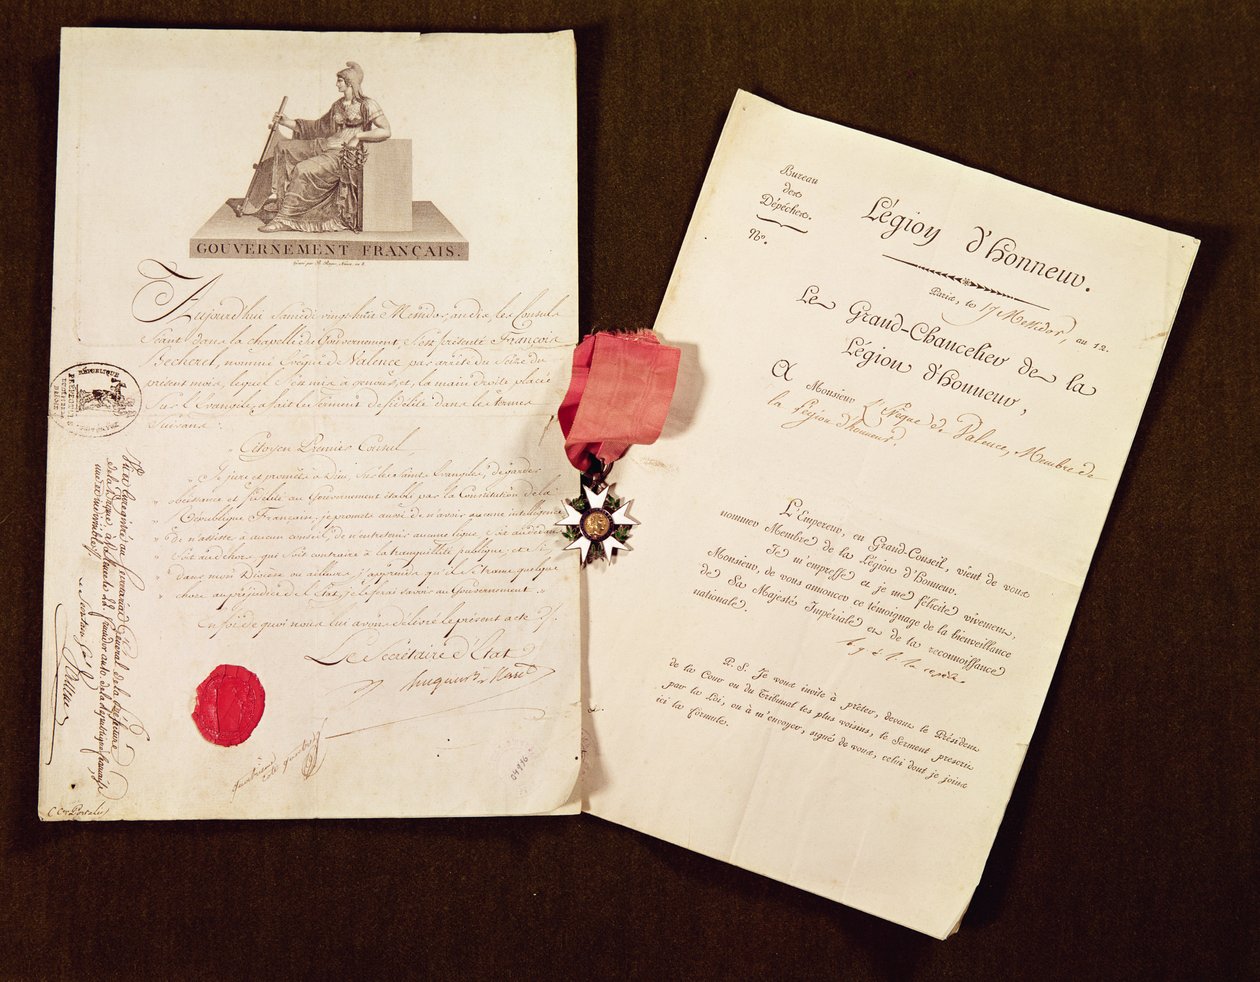 GOUVERNEMENT FRANÇAIS.
Aujourd'hui Samedi vingt huit Messidor, an dix, les Consuls
Séant dans la chapelle du Gouvernement, S'est présenté François
Becherel, nommé évêque de Valence, par arrêté du
présent mois, lequel S'en mis à genoux, et, la main droite placée
Sur l'Evangile, a fait le Serment de fidélité dans les termes
Suivans:
Citoyen Premier Consul,
" Je jure et promets à Dieu, Sur les Saints Evangiles, de garder
" obéissance et fidélité au Gouvernement établi par la Constitution de la
" République Française, je promets aussi de n'avoir aucune intelligence,
" de n'assister à aucun conseil, de n'entretenir aucune ligue, Soit au dedans
" Soit au dehors, qui Soit contraire à la tranquillité publique; et Si
" dans mon Diocèse ou ailleurs, j'apprends qu'il Se trame quelque
" chose au préjudice de l'Etat, je le ferai savoir au Gouvernement. "
En foi de quoi nous lui avons délivré le présent acte.
Le Secrétaire d'Etat
hugues B. Maret
RÉPUBLIQUE
Cen Portalis
04996
Bureau
des
Dépêches.
N°.
Légion d'honneur.
Paris, le 17 Messidor, an 12.
Le Grand-Chancelier de la
Légion d'honneur,
A Monsieur l'Evêque de Valence, Membre de
la Légion d'honneur.
L'Empereur, en Grand-Conseil, vient de vous
nommer Membre de la Légion d'honneur.
Je m'empresse et je me félicite vivement,
Monsieur, de vous annoncer ce témoignage de la bienveillance
de Sa Majesté Impériale et de la reconnoissance
nationale.
P. S. Je vous invite à prêter, devant le Président
de la Cour ou du Tribunal les plus voisins, le Serment prescrit
par la Loi, ou à m'envoyer, signé de vous, celui dont je joins
ici la formule.